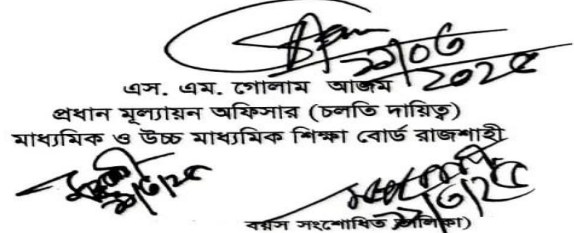 ২৯/০৬
২০২৫
এস. এম. গোলাম আজম
প্রধান মূল্যায়ন অফিসার (চলতি দায়িত্ব)
মাধ্যমিক ও উচ্চ মাধ্যমিক শিক্ষা বোর্ড রাজশাহী
বয়স সংশোধিত তালিকা)